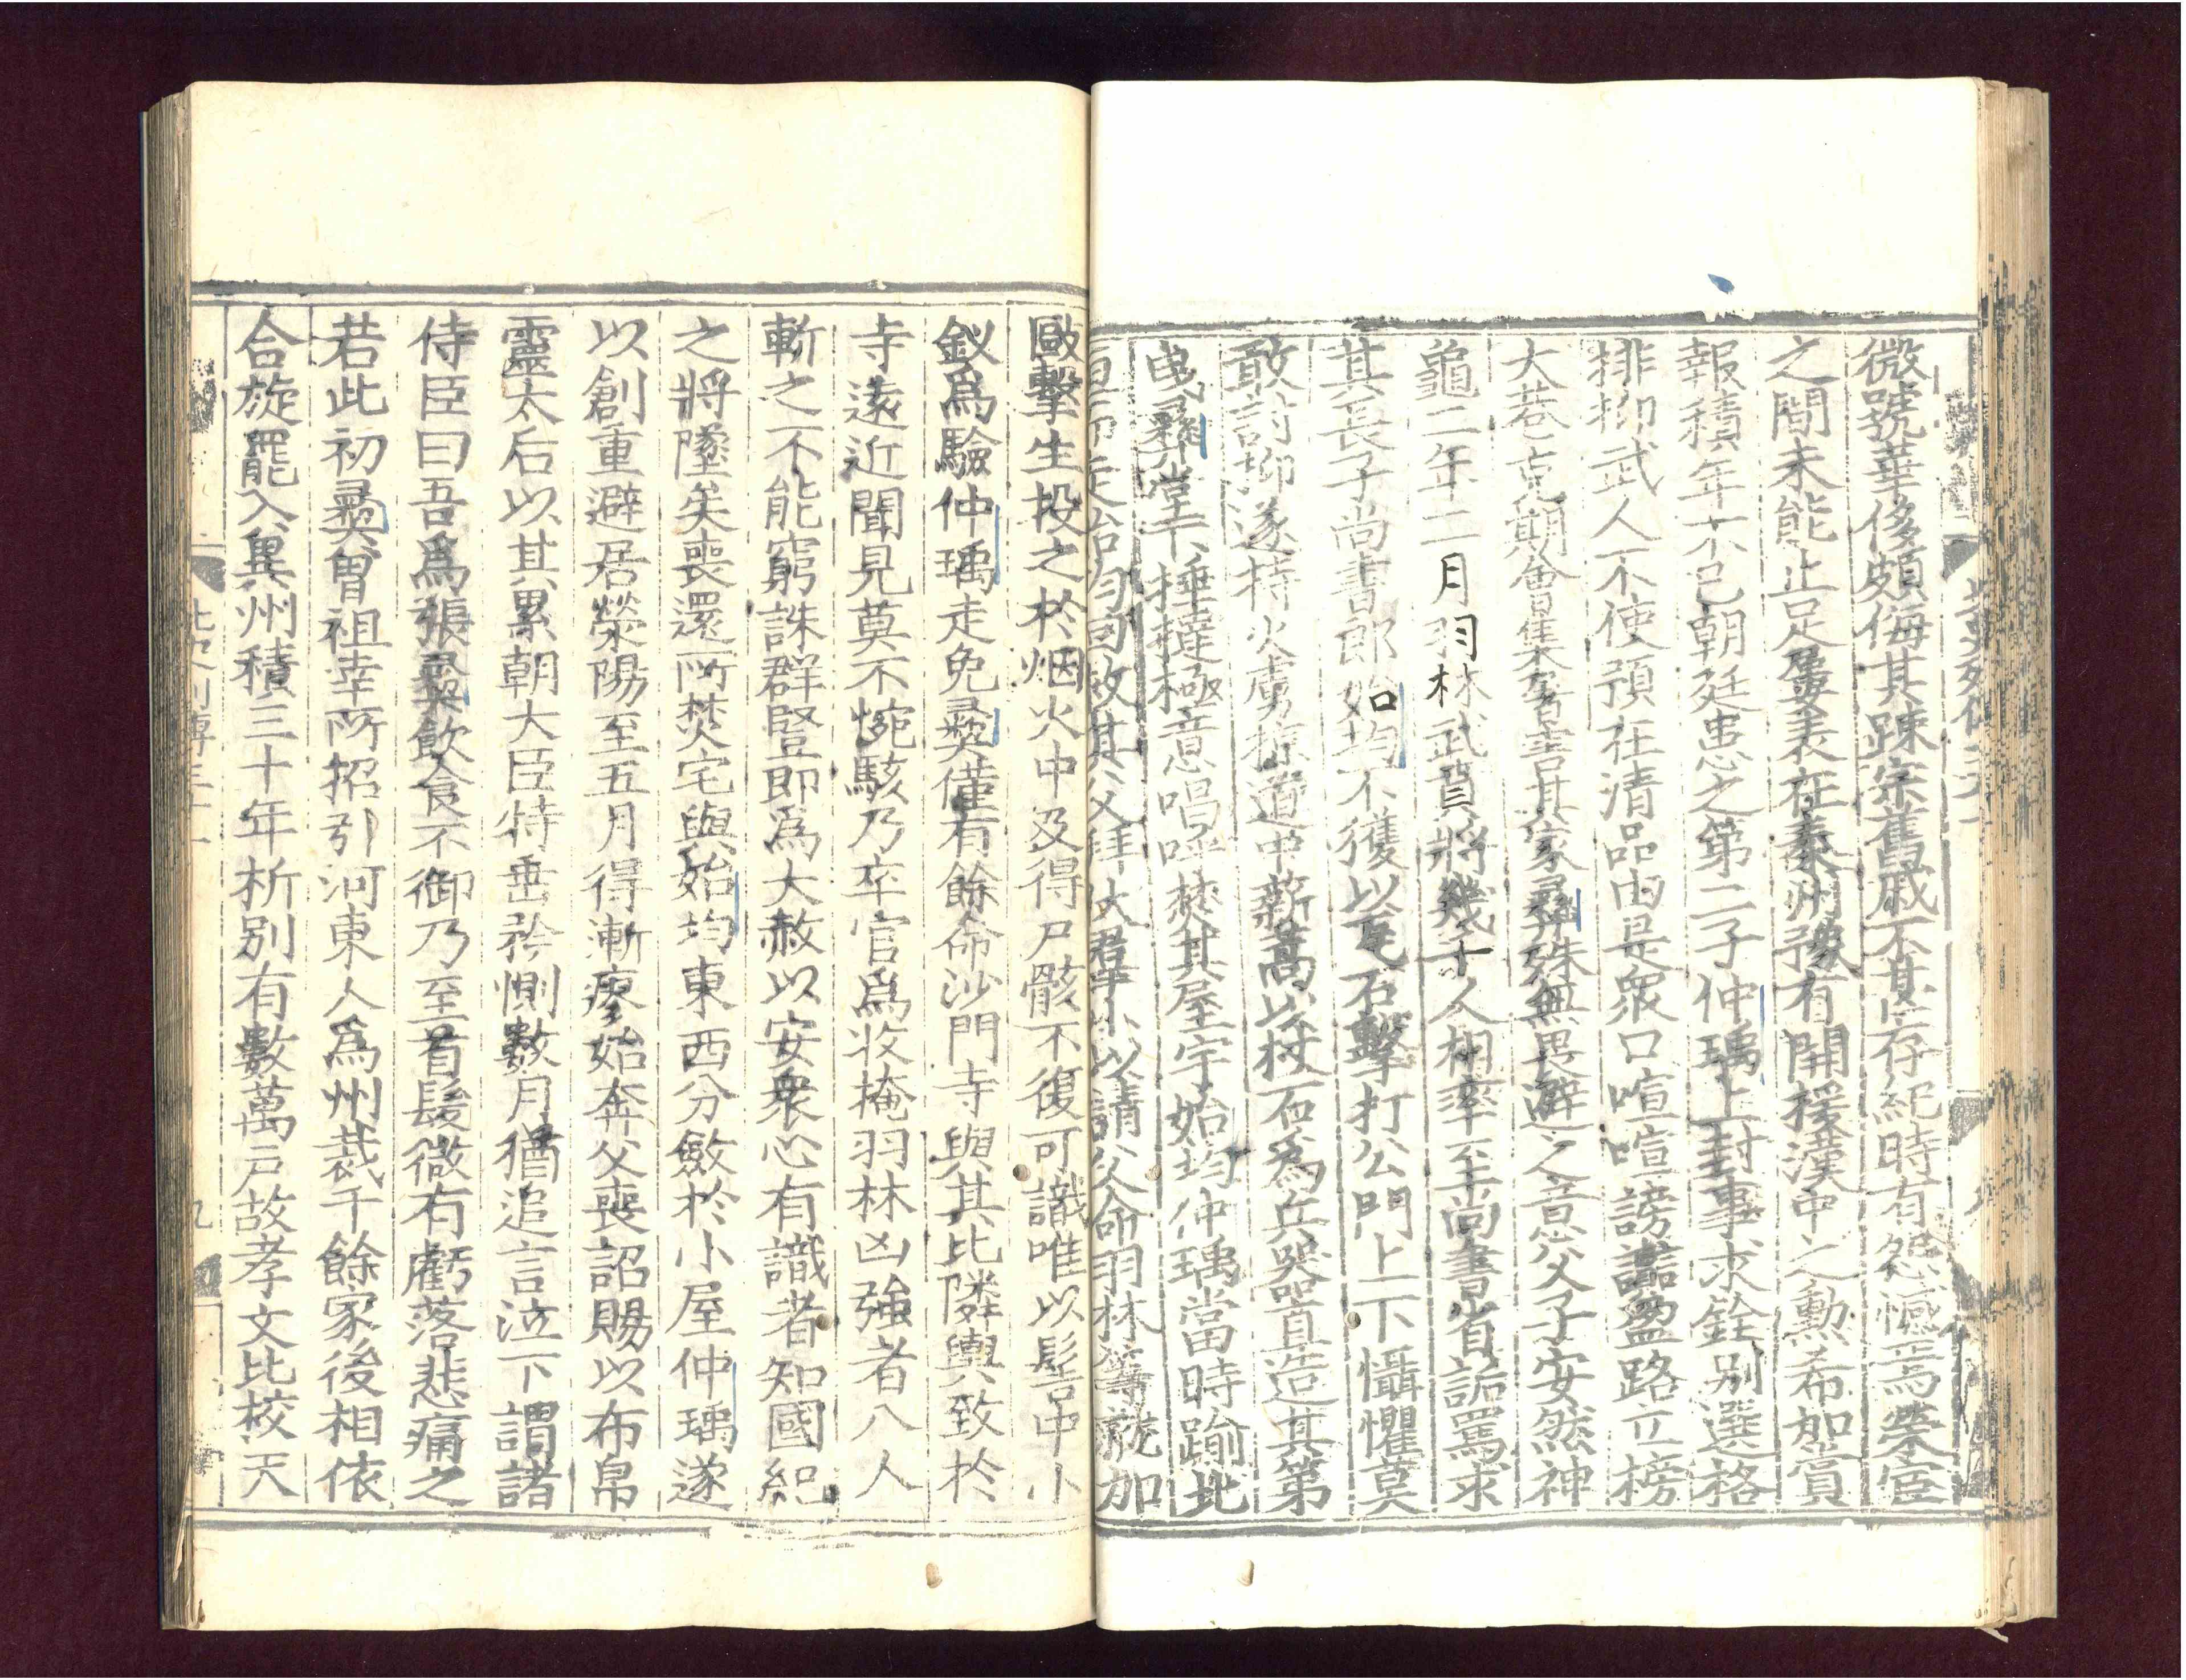 北史列傳三十一
微號華侈頗侮其踈宗舊戚不甚存紀時有怨憾焉榮宦
之間未能止足屢表在秦州預有開援漢中之勳希加賞
報積年不已朝廷患之第二子仲瑀上封事求銓別選格
排抑武人不使預在清品由是衆口喧喧謗讟盈路立榜
大巷克期會集屠害其家彛殊無畏避之意父子安然神
龜二年二月羽林武賁將幾千人相率至尚書省詬罵求
其長子尚書郎始均不獲以瓦石擊打公門上下懾懼莫
敢討抑遂持火虜掠道中薪蒿以杖石爲兵器直造其第
曳彛堂下捶撻極意唱呼焚其屋宇始均仲瑀當時踰北
垣而走始均回救其父拜伏羣小以請父命羽林等就加
毆擊生投之於烟火中及得尸骸不復可識唯以髻中小
釵爲驗仲瑀走免彛僅有餘命沙門寺與其比隣輿致於
寺遠近聞見莫不惋駭乃卒官爲收掩羽林凶強者八人
斬之不能窮誅群竪即爲大赦以安衆心有識者知國紀
之將墜矣喪還所焚宅與始均東西分斂於小屋仲瑀遂
以創重避居滎陽至五月得漸瘳始奔父喪詔賜以布帛
靈太后以其累朝大臣特垂矜惻數月猶追言泣下謂諸
侍臣曰吾爲張彛飲食不御乃至首髮微有虧落悲痛之
若此初彛曾祖幸所招引河東人爲州裁千餘家後相依
合旋罷入兾州積三十年析別有數萬戶故孝文比校天
北史列傳三十一
九